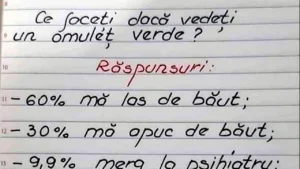 Ce faceți dacă vedeți
un omuleț verde?
Răspunsuri:
- 60% mă las de băut;
- 30% mă apuc de băut;
- 9,9% merg la psihiatru;